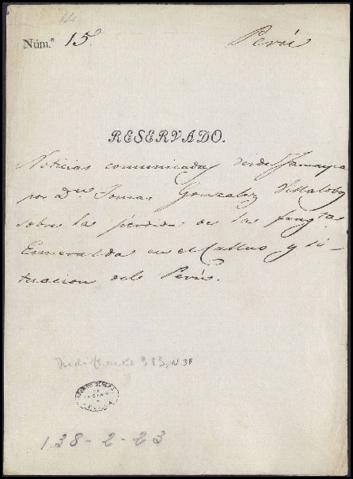 Núm.º 15º Perú
RESERVADO.
Noticias comunicadas desde Jamayca
por Dn. Tomas Gonzalez Villalobos
sobre la perdida de las fragta
Esmeralda en el Callao, y si-
tuacion del Perú.
Indiferente 313, N 38
138-2-23